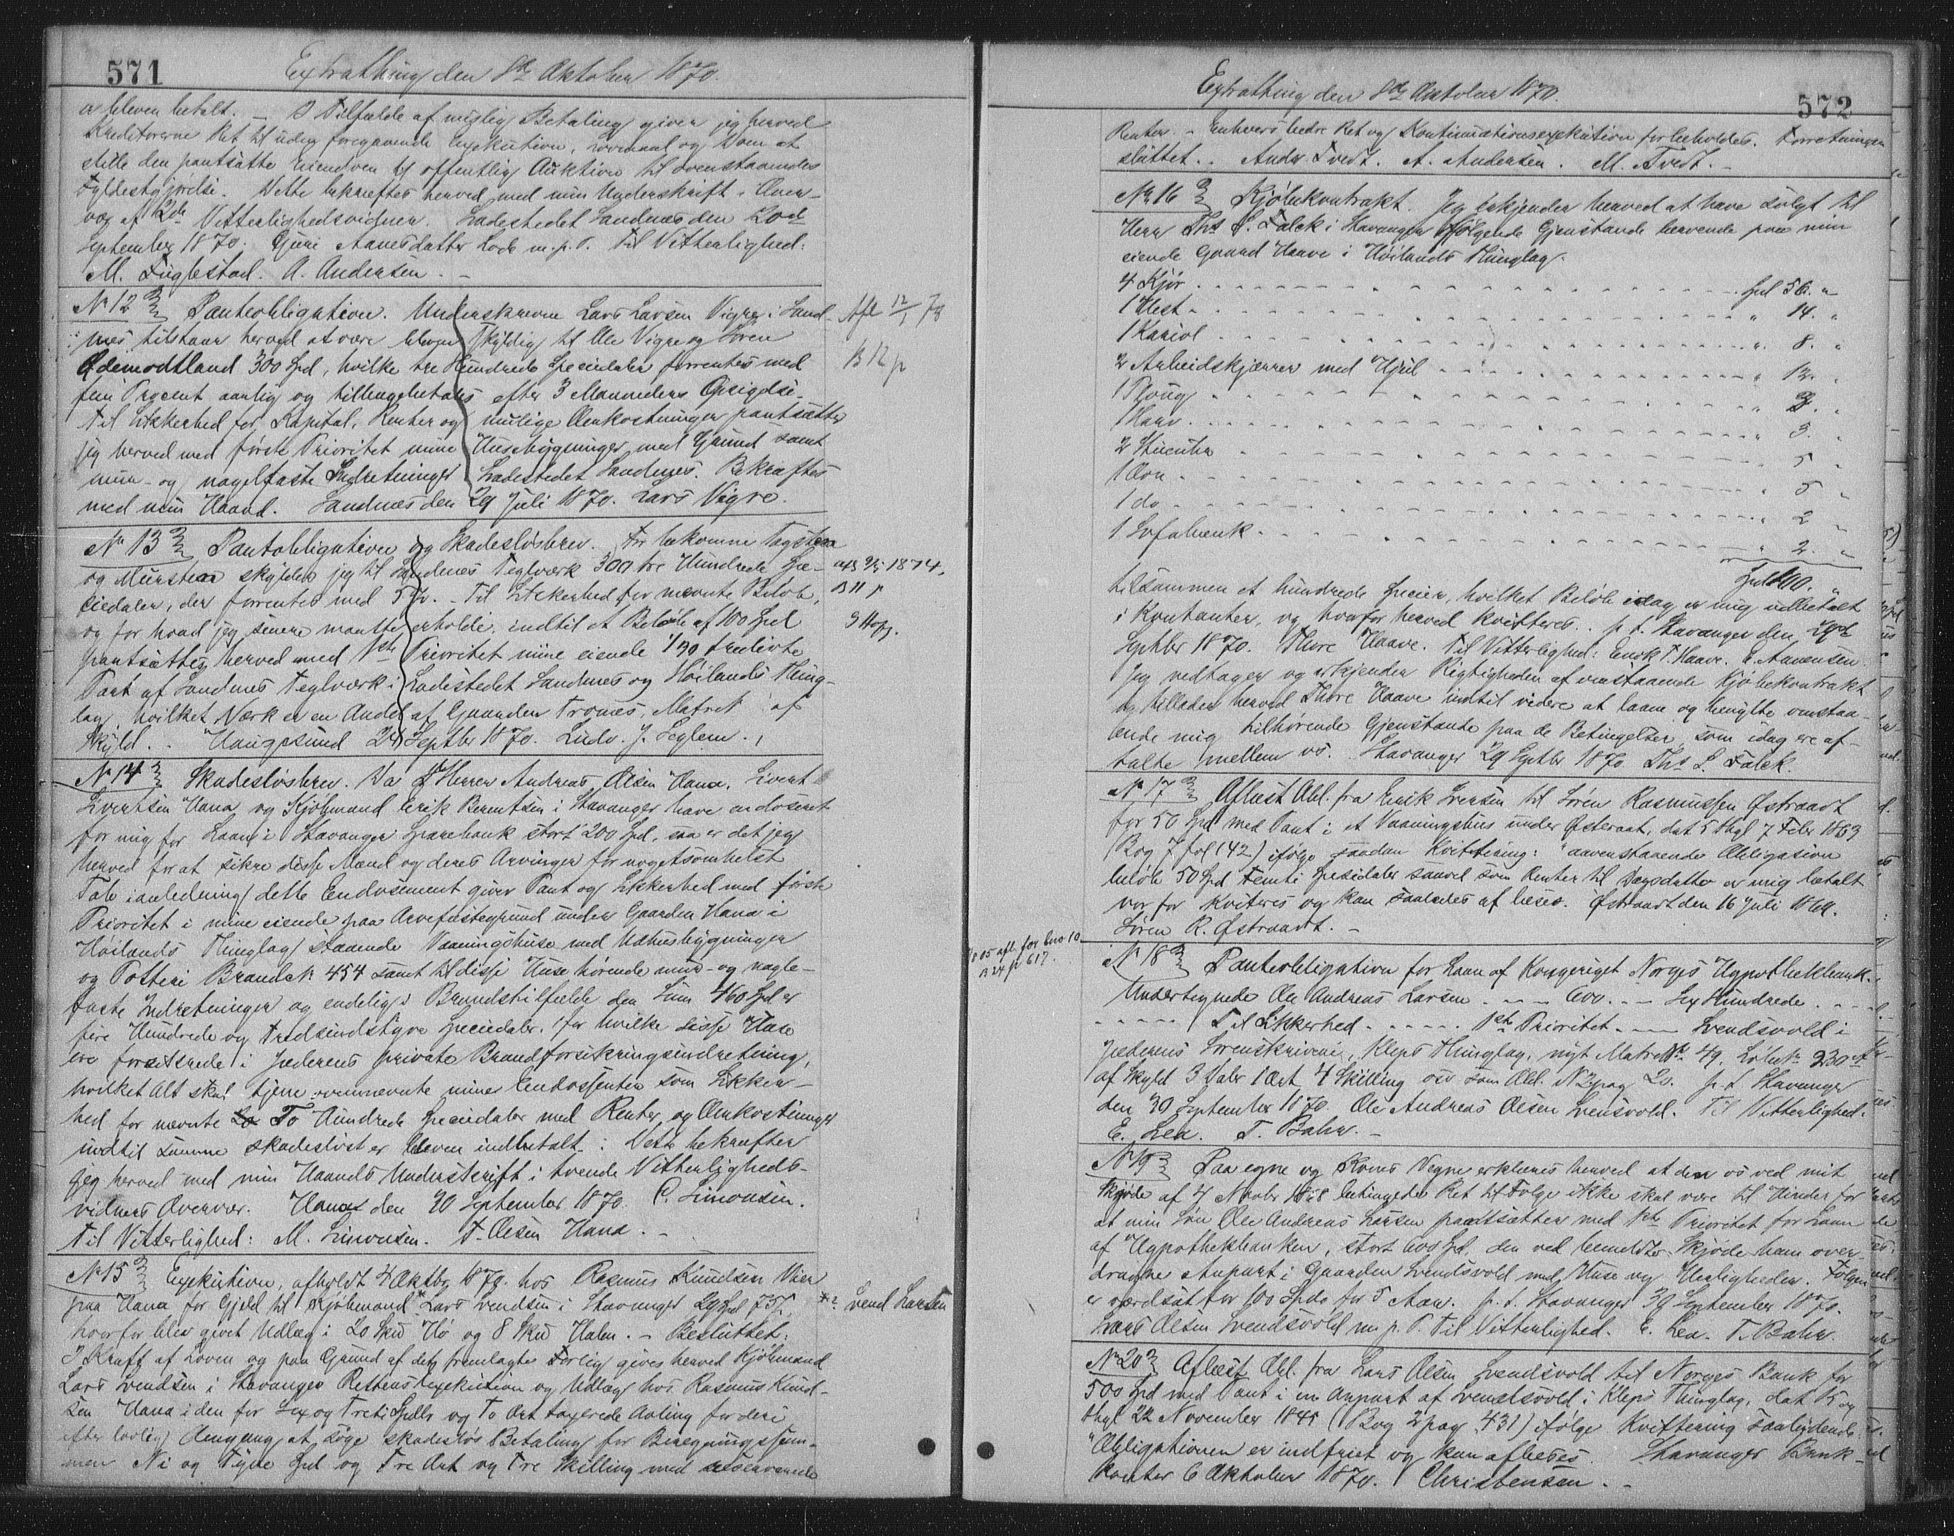 571
Extrathing den 8de Oktober 1870.
er bleven betalt. – I Tilfælde af mislig Betaling giver jeg herved
Kreditorerne Ret til uden foregaaende Exekution, Lovmaal og Dom at
stille den pantsatte Eiendom til offentlig Auktion til ovenstaaendes
Fyldestgjørelse. Dette bekræftes herved med min Underskrift i Over-
vær af 2de Vitterlighedsvidner. Ladestedet Sandnæs den
September 1870. Guri Aanesdatter Lode m. p. P. Til Vitterlighed:
M. Fuglestad. A. Andersen. –
No 12 Panteobligation. Underskrevne Lars Larsen Vigre i Sand-
næs tilstaar herved at være bleven skyldig til Ole Vigre og Søren
Ødemodtland 300 Spd, hvilke tre Hundrede Speciedaler forrentes med
fem Procent aarlig og tilbagebetales efter 3 Maaneders Opsigelse.
Til Sikkerhed for Kapital, Renter og mulige Omkostninger pantsætter
jeg herved med første Prioritet mine Husebygninger med Grund samt
mur- og nagelfaste Indretninger i Ladestedet Sandnes. Bekræftes
med min Haand. Sandnæs den 29 Juli 1870. Lars Vigre.
Afl 12/1 78
B 12 p
No 13 Pantobligation og Skadesløsbrev. For bekomne Tagsten
og Mursten skylder jeg til Sandnes Teglværk 300 tre Hundrede Spe-
ciedaler, der forrentes med 5 %. – Til Sikkerhed for nævnte Beløb,
og for hvad jeg senere maatte erholde, indtil et Beløb af 100 Spd
pantsættes herved med 1ste Prioritet mine eiende 1/90 tredivte
Part af Sandnes Teglværk i Ladestedet Sandnes og Høilands Thing-
lag, hvilket Værk er en Andel af Gaarden Trones, Matr. No af
Skyld. . Haugesund 24 Septbr 1870. Ludv. J. Seglem.
1874.
B 11 p
No 14 Skadesløsbrev. Da Herrer Andreas Olsen Hana, Sivert
Sivertsen Hana og Kjøbmand Erik Berentsen i Stavanger have endosseret
for mig for Laan i Stavanger Sparebank stort 200 Spd, saa er det jeg
herved for at sikre disse Mænd og deres Arvinger for nogetsomhelst
Tab i anledning dette Endossement giver Pant og Sikkerhed med første
Prioritet i mine eiende paa Arvefæstegrund under Gaarden Hana i
Høilands Thinglag staaende Vaaningshuse med Udhusbygninger
og Potteri Brand No 454 samt til disse Huse hørende mur- og nagle-
faste Indretninger og endelig i Brandstilfælde den Sum 460 Spd er
fire Hundrede og Tredsindstyve Speciedaler, for hvilke disse Huse
ere forsikrede i Jæderens private Brandforsikringsindretning,
hvilket Alt skal tjene ovennævnte mine Endossenter som Sikker-
hed for nævnte To Hundrede Speciedaler med Renter og Omkostninger
indtil Summen skadesløst er bleven indbetalt. Dette bekræfter
jeg herved med min Haands Underskrift i tvende Vitterligheds-
vidners Overvær. Hana den 20 September 1870. C. Simonsen.
Til Vitterlighed: M. Simonsen. T. Olsen Hana. –
No 15 Exekution, afholdt 4 Oktbr 1870 hos Rasmus Knudsen Vier
paa Hana for Gjæld til Kjøbmand* Lars Svendsen i Stavanger 29 Spd 75 s,
*: Svend Larsen
hvorfor blev givet Udlæg i 20 Skv Hø og 8 Skv Halm. – Besluttet:
I Kraft af Loven og paa Grund af dets fremlagte Forlig gives herved Kjøbmand
Lars Svendsen i Stavanger Rettens Exekution og Udlæg hos Rasmus Knud-
sen Hana i den for Sex og Treti Spdlr og To Ort taxerede Avling for deri
efter lovlig Omgang at søge skadesløs Betaling for Beregningssum-
men Ni og Tyve Spd og Tre Ort og Tre Skilling med resterende
572
Extrathing den 8de Oktober 1870.
Renter. – Enhvers bedre Ret og Kontinuationsexekution forbeholdes. Forretningen
sluttet. . Ander Tvedt. A. Andersen. M. Tvedt. –
No 16 Kjøbekontrakt. Jeg erkjender herved at have solgt til
Herr Ths S. Falck i Stavanger følgende Gjenstande beroende paa min
eiende Gaard Haave i Høilands Thinglag.
4 Kjør . . . Spd 56. "
1 Hest . . . " 14. "
1 Kariol . . . " 8. "
2 Arbeidskjærrer med Hjul . . . " 12. "
1 Ploug . . . " 3. "
1 Harv . . . " 3. "
2 Stueuhr . . . " 5 "
1 Ovn . . . " 5 "
1 do . . . " 2 "
1 Sofabænk . . . " 2. "
Spd 100. "
tilsammen et hundrede Specier, hvilket Beløb idag er mig udbetalt
i Kontanter, og hvorfor herved kvitteres. p. t. Stavanger den 29de
Septbr 1870. Thore Haave. Til Vitterlighed: Enok T. Haave. E. Aanensen.
Jeg vedtager og erkjender Rigtigheden af ovenstaaende Kjøbekontrakt
og tillader herved Thore Haave indtil videre at laane og benytte ovenstaa-
ende mig tilhørende Gjenstande paa de Betingelser som idag ere af-
talte mellem os. Stavanger 29 Septbr 1870. Ths S. Falck.
No 17 Aflæst Obl. fra Enok Iversen til Søren Rasmussen Østraadt
for 50 Spd med Pant i et Vaaningshus under Østeraat, dat 5 thgl 7 Febr 1863
(Bog 7 fol 142) ifølge saadan Kvittering: "aavenstaaende Obligasion
beløb 50 Spd Femti Spesidaler saavel som Renter til Dagsdatto er mig betalt
vor for kviteres og kan saaledes af læses. Østraadt den 16 Juli 1869.
Søren R. Østraadt. –
1805 afl. for Lno 10
B 24 p 617.
No 18 Panteobligation for Laan af Kongeriget Norges Hypothekbank.
Undertegnede Ole Andreas Larsen . – – 600. – – Sex Hundrede . – – –
– – – – – Til Sikkerhed – . – – – . 1ste Prioritet. – – – Svendsvold i
Jæderens Sorenskriveri, Kleps Thinglag, nyt Matr No 49, Løbe No 230
af Skyld 3 Daler 1 Ort 4 Skilling osv som Obl. N 2 pag 20. p. t. Stavanger
den 30 September 1870. Ole Andreas Olsen Svensvold. Til Vitterlighed:
E. Lea. T. Bahr. –
No 19 Paa egne og Kones Vegne erklæres herved at den os ved mit
Skjøde af 4 Novbr betingede Ret til Folge ikke skal være til Hinder for
at min Søn Ole Andreas Larsen pantsætter med 1ste Prioritet for Laan
af Hypothekbanken, stort 600 Spd, den ved bemeldte Skjøde ham over-
dragne Anpart i Gaarden Svendsvold med Huse og Herligheder. Folgen
er værdsat for 100 Spd for 5 Aar. p. t. Stavanger 30 September 1870.
Lars Olsen Svendsvold m. p. P. Til Vitterlighed. E. Lea. T. Bahr.
No 20 Aflæst Obl. fra Lars Olsen Svendsvold til Norges Bank for
500 Spd med Pant i en Anpart af Svendsvold i Kleps Thinglag, dat 15 og
thgl 22 November 1845 (Bog 2 pag 431) ifølge Kvittering saalydende:
"Obligationen er indfriet og kan aflæses. Stavanger Bank-
kontor 6 Oktober 1870. Christensen. –